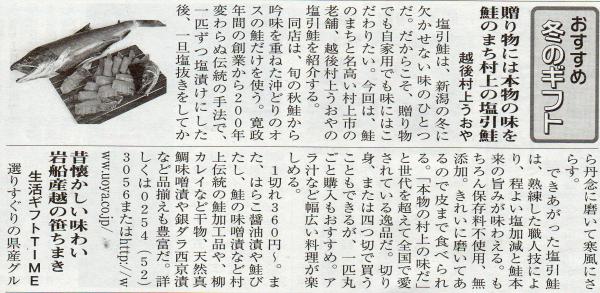 おすすめ
冬のギフト
贈り物には本物の味を
鮭のまち村上の塩引鮭
越後村上うおや
塩引鮭は、新潟の冬に
欠かせない味のひとつ
だ。だからこそ、贈り物
でも自家用でも味にはこ
だわりたい。今回は、鮭
のまちと名高い村上市の
老舗、越後村上うおやの
塩引鮭を紹介する。
同店は、旬の秋鮭から
吟味を重ねた沖どりのオ
スの鮭だけを使う。寛政
年間の創業から200年
変わらぬ伝統の手法で、
一匹ずつ塩漬けにした
後、一旦塩抜きをしてか
ら丹念に磨いて寒風にさ
らす。
できあがった塩引鮭
は、熟練した職人技によ
り、程よい塩加減と鮭本
来の旨みが味わえる。も
ちろん保存料不使用、無
添加。きれいに磨いてあ
るので皮まで食べられ
る。「本物の村上の味だ」
と世代を超えて全国で愛
されている逸品だ。切り
身、または四つ切で買う
こともできるが、一匹丸
ごと購入もおすすめ。ア
ラ汁など幅広い料理が楽
しめる。
1切れ360円〜。ま
た、はらこ醤油漬や鮭び
たし、鮭の味噌漬など村
上伝統の鮭加工品や、柳
カレイなど干物、天然真
鯛味噌漬や銀ダラ西京漬
など品揃えも豊富だ。詳
しくは0254（52）
3056またはhttp://w
ww.uoya.co.jp/
昔懐かしい味わい
岩船産越の笹ちまき
生活ギフトTIME
選りすぐりの県産グル